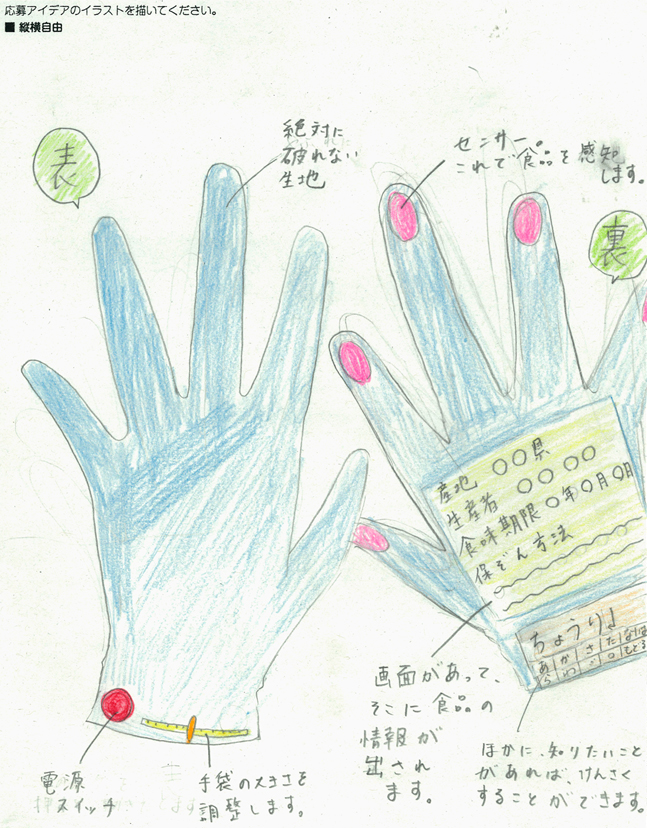 応募アイデアのイラストを描いてください。
■ 縦横自由
表
絶対に
破れない
生地
センサー
これで食品を感知
します。
裏
産地 〇〇県
生産者 〇〇〇〇
食味期限 〇年〇月〇月
保ぞん方法
ちょうり
あかさたなは
画面があって、
そこに食品の
情報が
出され
ます。
ほかに、知りたいこと
があれば、けんさく
することができます。
電源
スイッチ
手袋の大きさを
調整します。